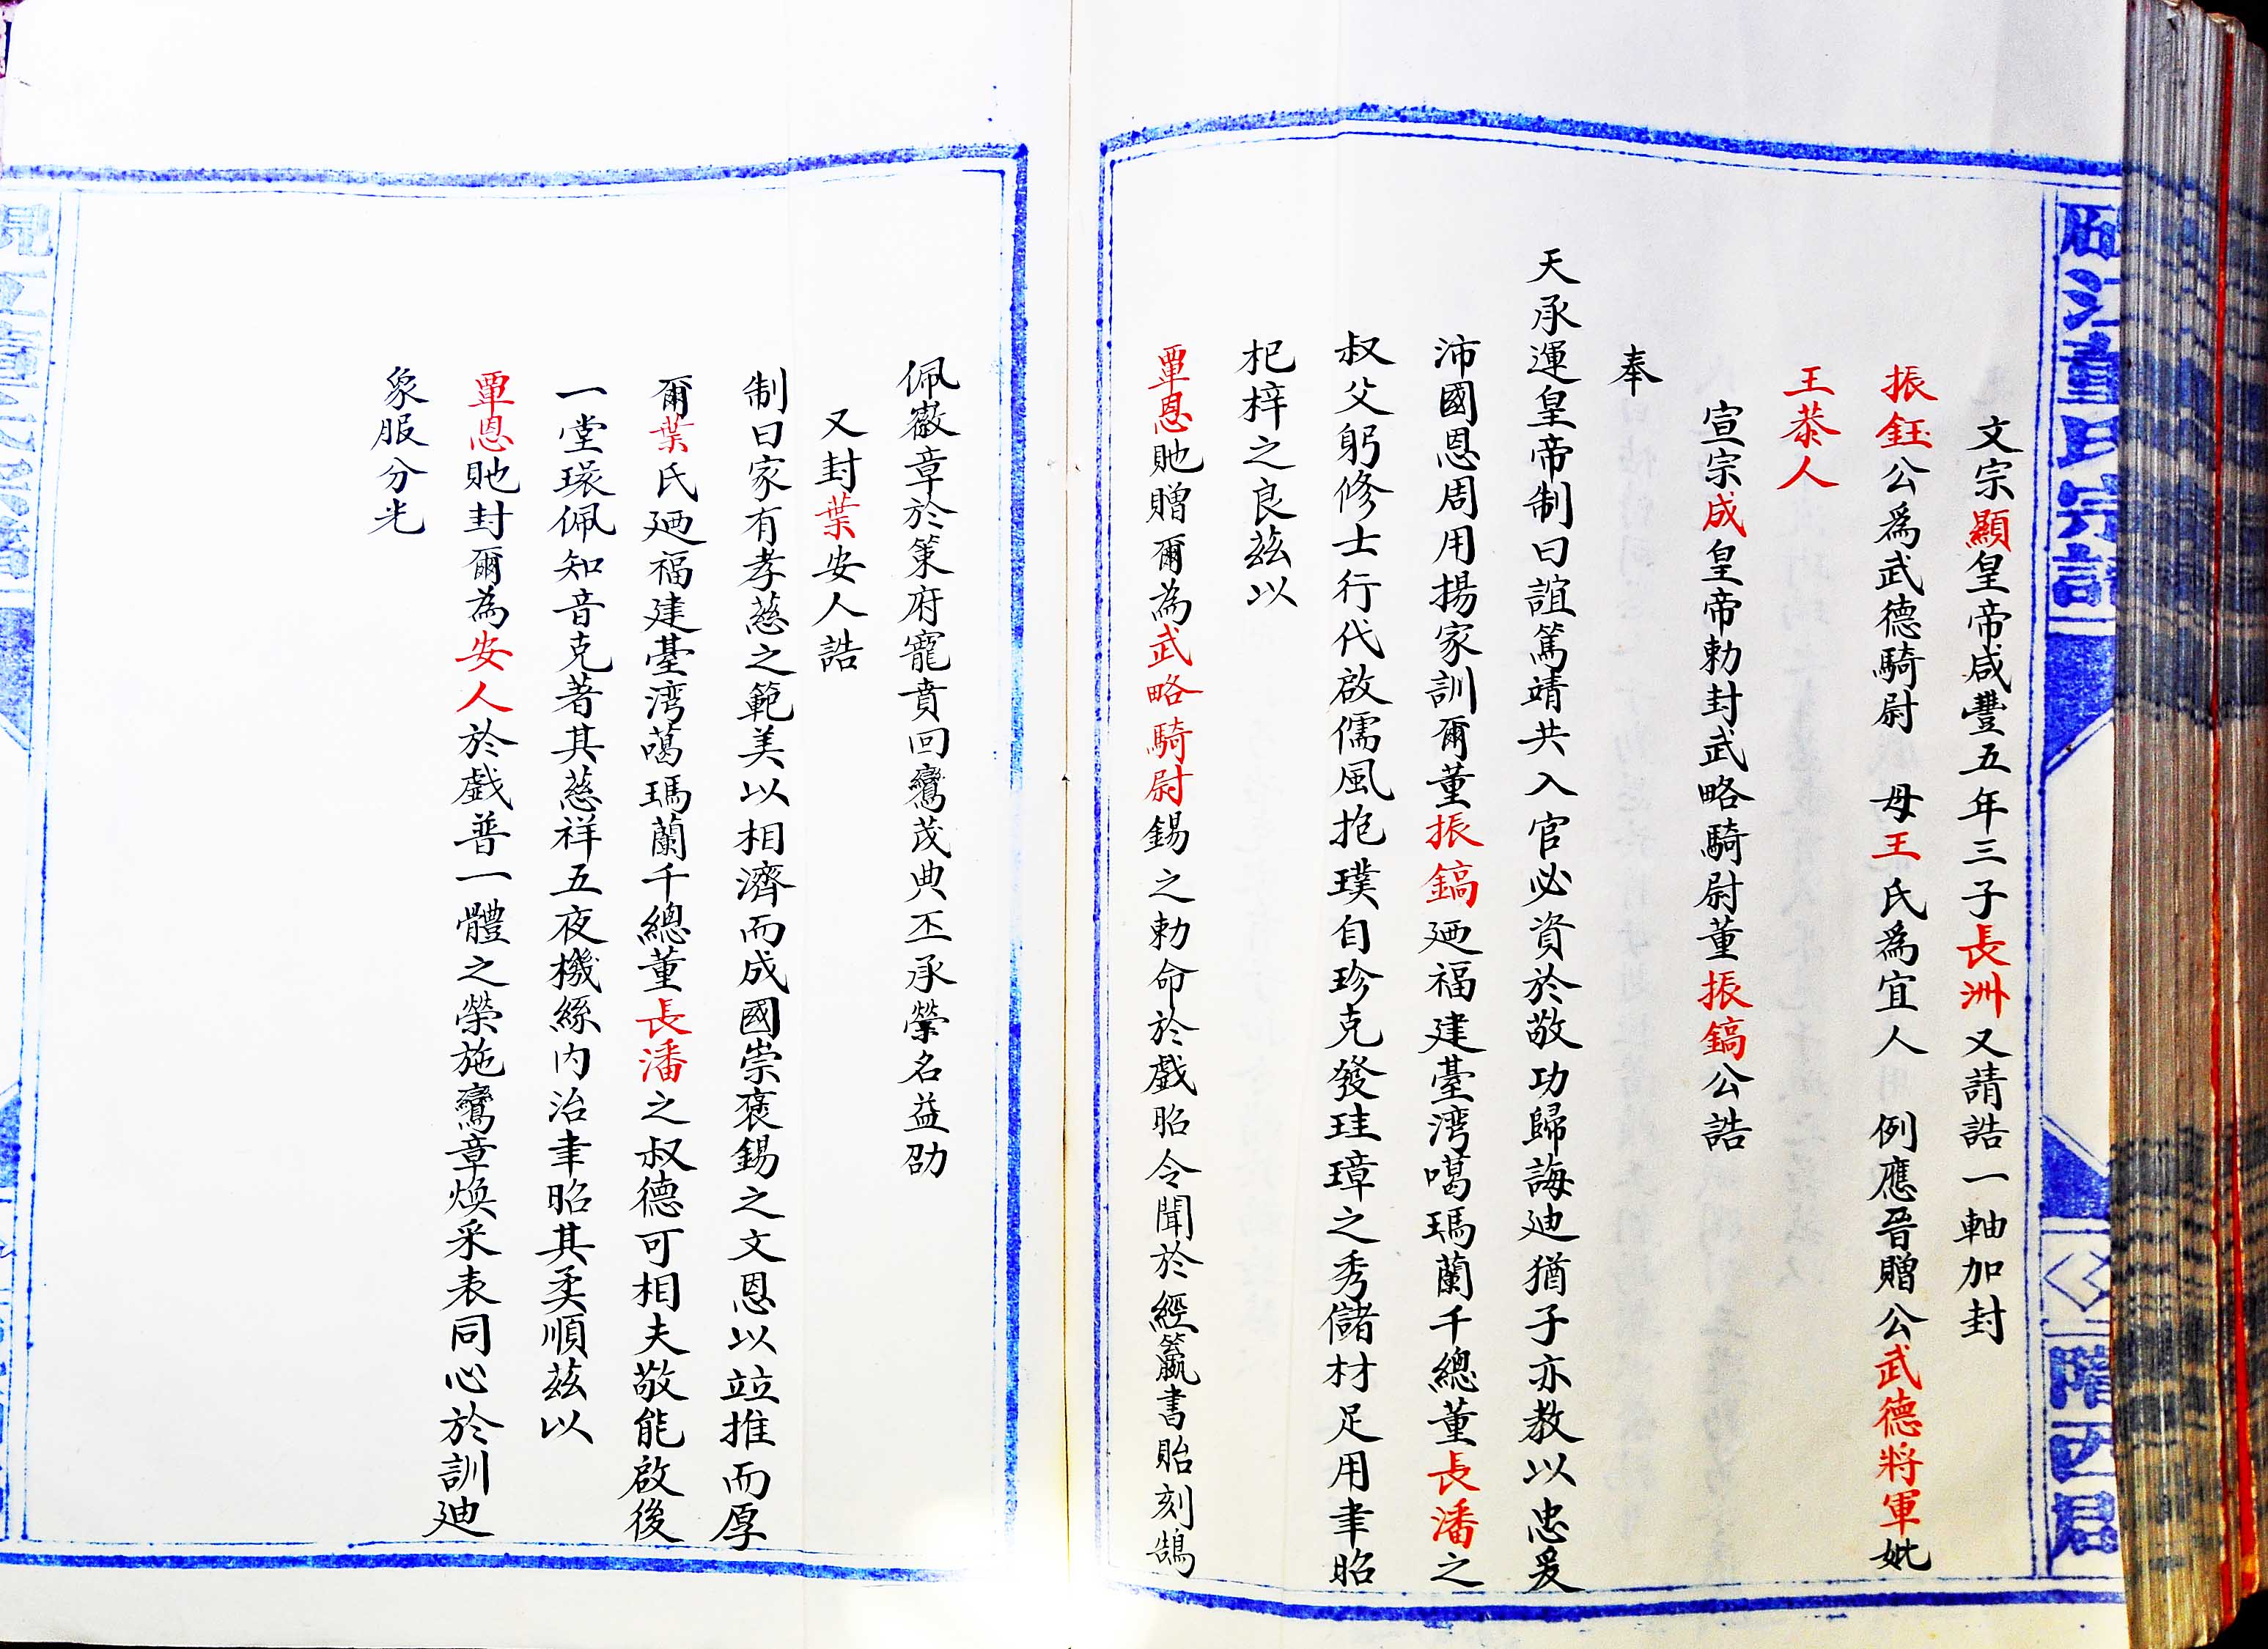 文宗顯皇帝咸豐五年三子長洲又請誥一軸加封
振鈺公爲武德騎尉　母王氏爲宜人　例應晉贈公武德將軍妣
王恭人
宣宗成皇帝勅封武略騎尉董振鎬公誥
奉
天承運皇帝制曰誼篤靖共入官必資於敬功歸誨廸猶子亦教以忠爰
沛國恩周用揚家訓爾董振鎬廼福建臺湾噶瑪蘭千總董長潘之
叔父躬修士行代啟儒風抱璞自珍克發珪璋之秀儲材足用聿昭
杞梓之良茲以
覃恩貤贈爾為武略騎尉錫之勅命於戲昭令聞於經籯書貽刻鵠
佩徽章於策府寵賁回鸞茂典丕承榮名益劭
又封葉安人誥
制曰家有孝慈之範美以相濟而成國崇褒錫之文恩以竝推而厚
爾葉氏廼福建臺湾噶瑪蘭千總董長潘之叔德可相夫敬能啟後
一堂環佩知音克著其慈祥五夜機絲内治聿昭其柔順茲以
覃恩貤封爾為安人於戲普一體之榮施鸞章煥采表同心於訓廸
象服分光
董氏宗譜